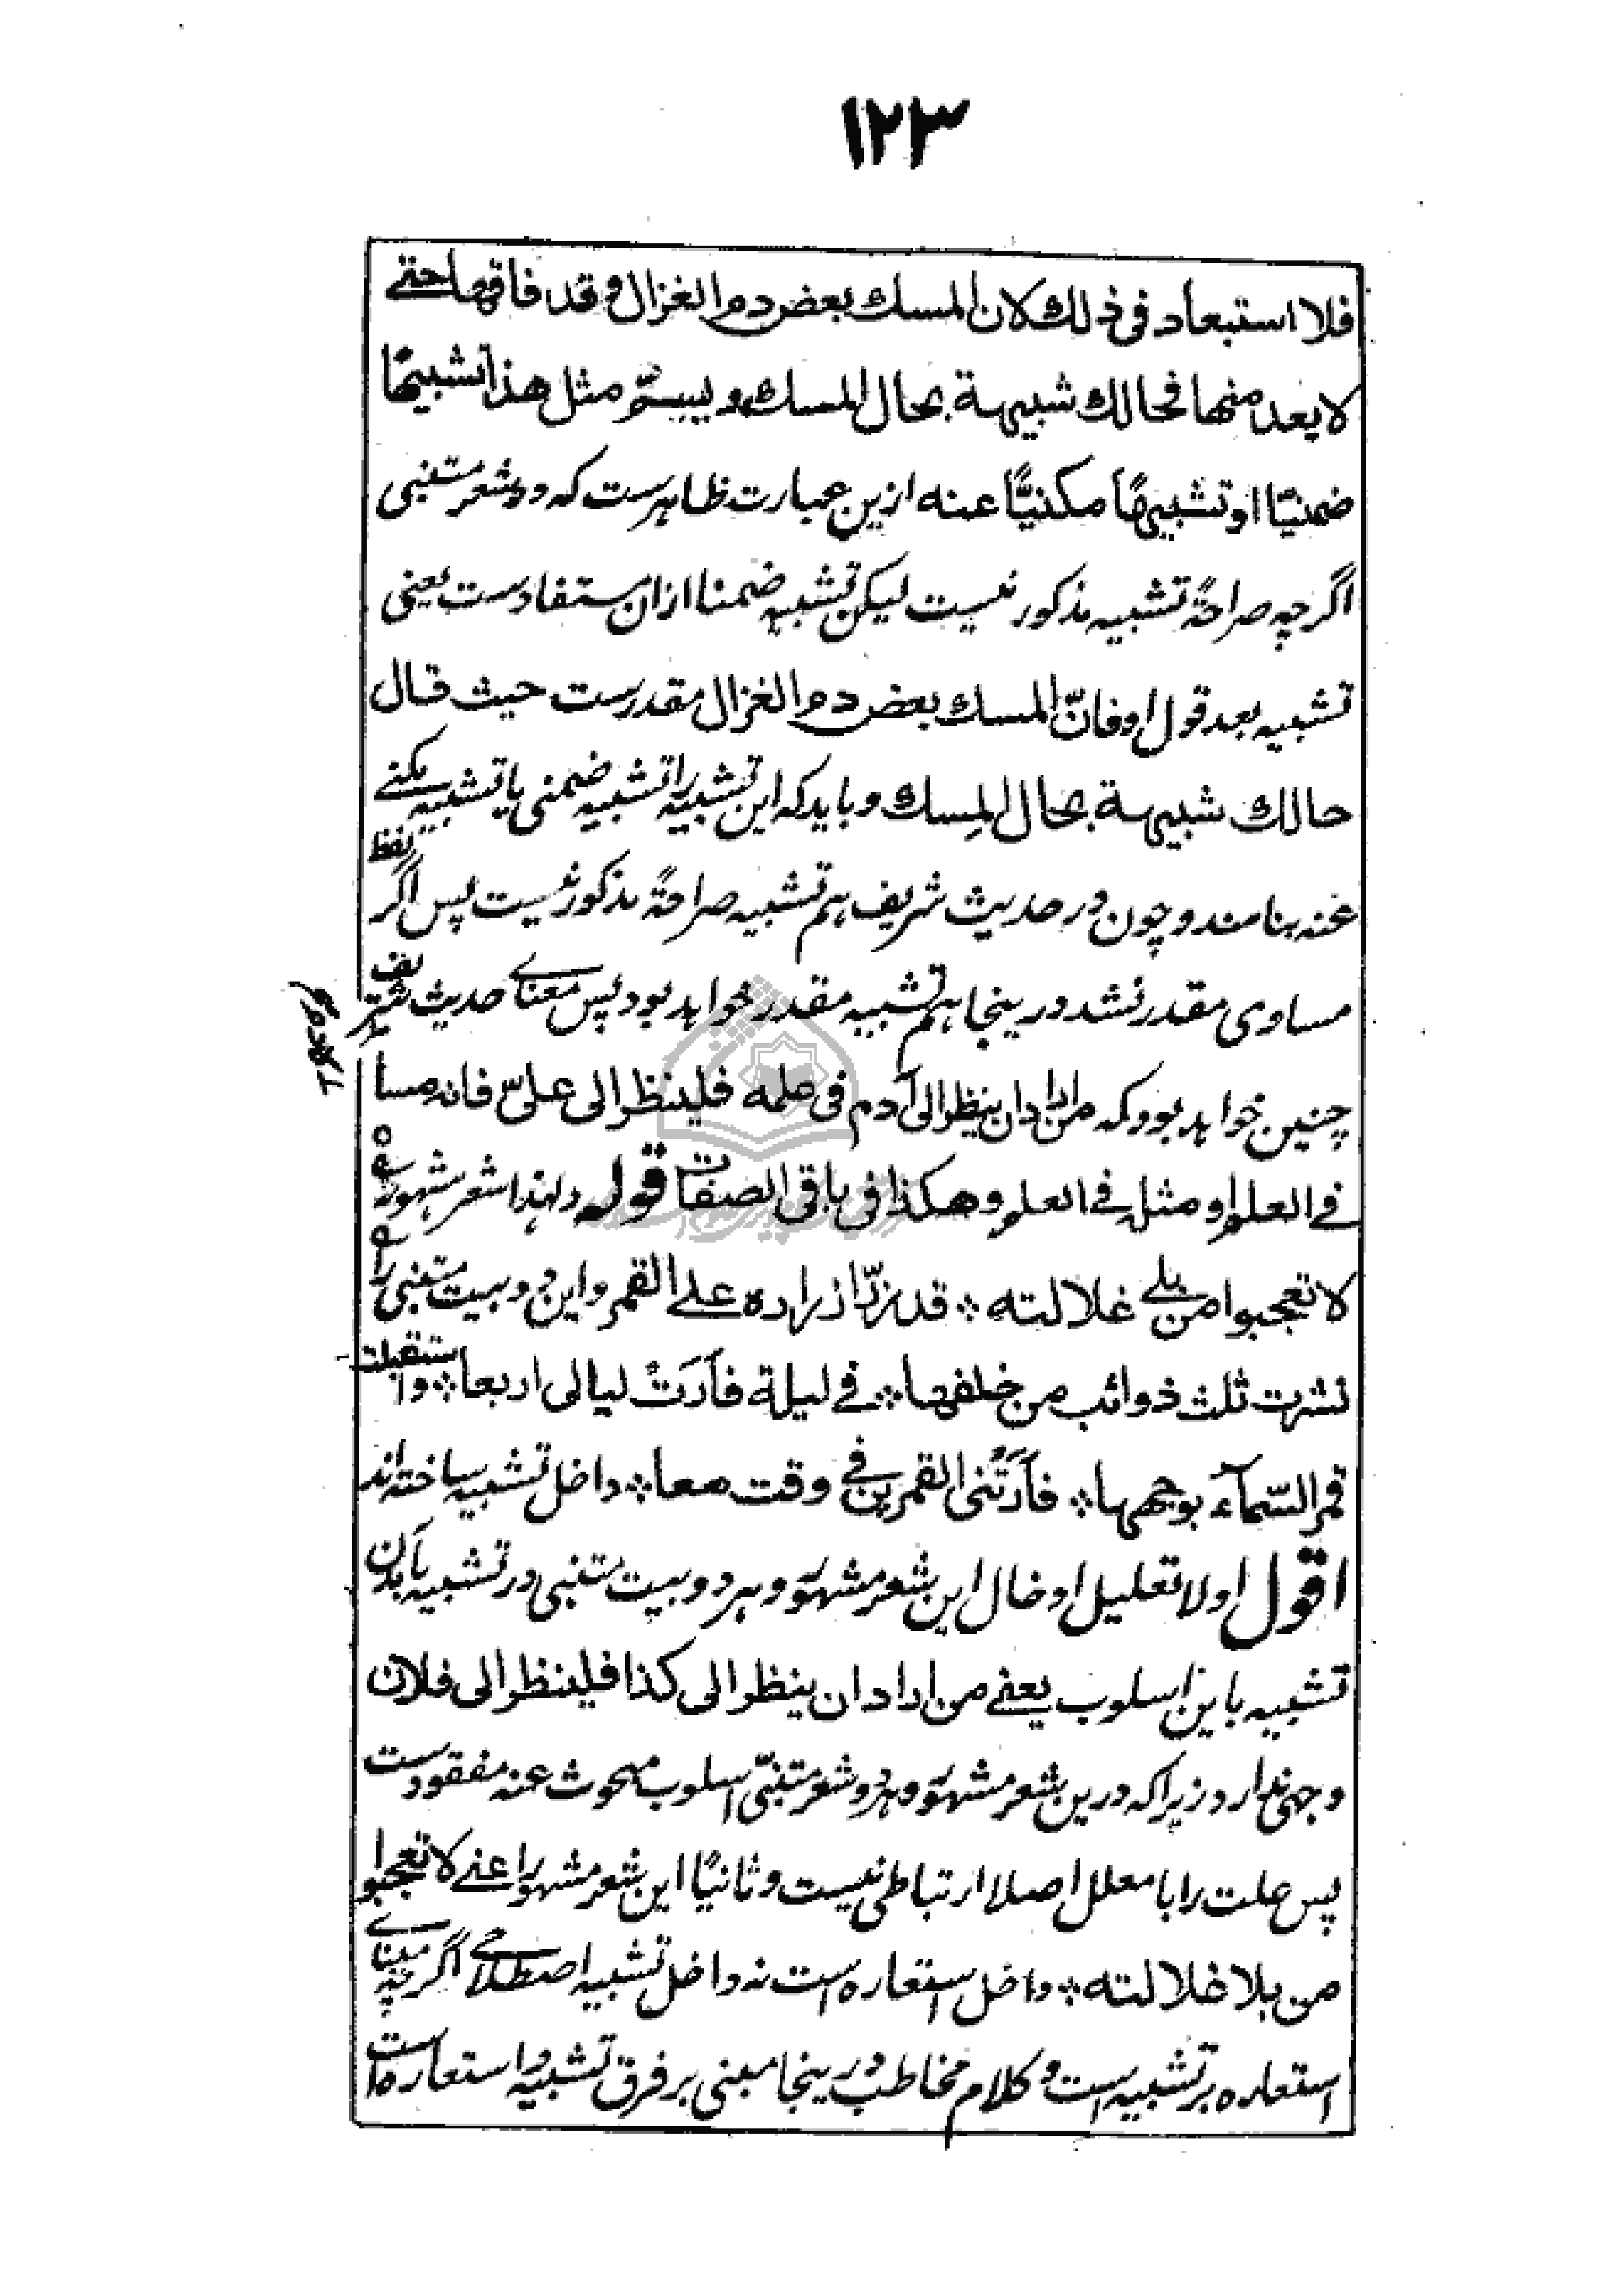 ١٢٣
فلا استبعاد فى ذلك لان المسك بعض دم الغزال وقد فاقها حتے
لا يعد منها فحالك شبيهة بحال المسك ويسمّٰى مثل هذا تشبيهًا
ضمنيًّا او تشبيهًا مكنيًّا عنه ازین عبارت ظاہرست که در شعر متنبی
اگرچه صراحةً تشبیه مذکور نیست لیکن تشبیه ضمنا ازان مستفادست یعنی
تشبیه بعد قول او فانّ المسك بعض دم الغزال مقدرست حیث قال
حالك شبيهة بحال المِسك و باید که این تشبیه را تشبیه ضمنی یا تشبیه مکنے
عنه بنامند و چون در حدیث شریف ہم تشبیه صراحةً مذکور نیست پس اگر لفظ
مساوی مقدر نشد درینجا ہم تشبیه مقدر خواہد بود پس معناے حدیث شریف
چنین خواہد بود که من اراد ان ينظر الى آدم فى علمه فلينظر الى علىّ فانه مسا
فے العلم او مثله فے العلم وهكذا فى باقى الصفات قوله ولہذا شعر مشہورے
لا تعجبوا من بلے غلالته ❊ قد زرّ ازراره علے القمر و این دو بیت متنبی را
نشرت ثلث ذوائب من خلفها ❊ فے ليلة فاَرَتْ ليالى اربعا ❊ واستقبلت
قمر السّمآء بوجهها ❊ فاَرَتْنى القمرين فے وقت معا ❊ داخل تشبیه ساخته اند
اقول اولا تعلیل ادخال این شعر مشہور و ہر دو بیت متنبی در تشبیه بآمدن
تشبیه باین اسلوب یعنے من اراد ان ينظر الى كذا فلينظر الى فلان
وجہی ندارد زیرا که درین شعر مشہور و ہر دو شعر متنبّی اسلوب مبحوث عنه مفقودست
پس علت را با معلل اصلا ارتباطی نیست و ثانیًا این شعر مشہور اعنے لا تعجبوا
من بلا غلالته ❊ داخل استعاره است نه داخل تشبیه اصطلاحے اگرچه مبناے
استعاره بر تشبیه است و کلام مخاطب درینجا مبنی بر فرق تشبیه و استعاره است